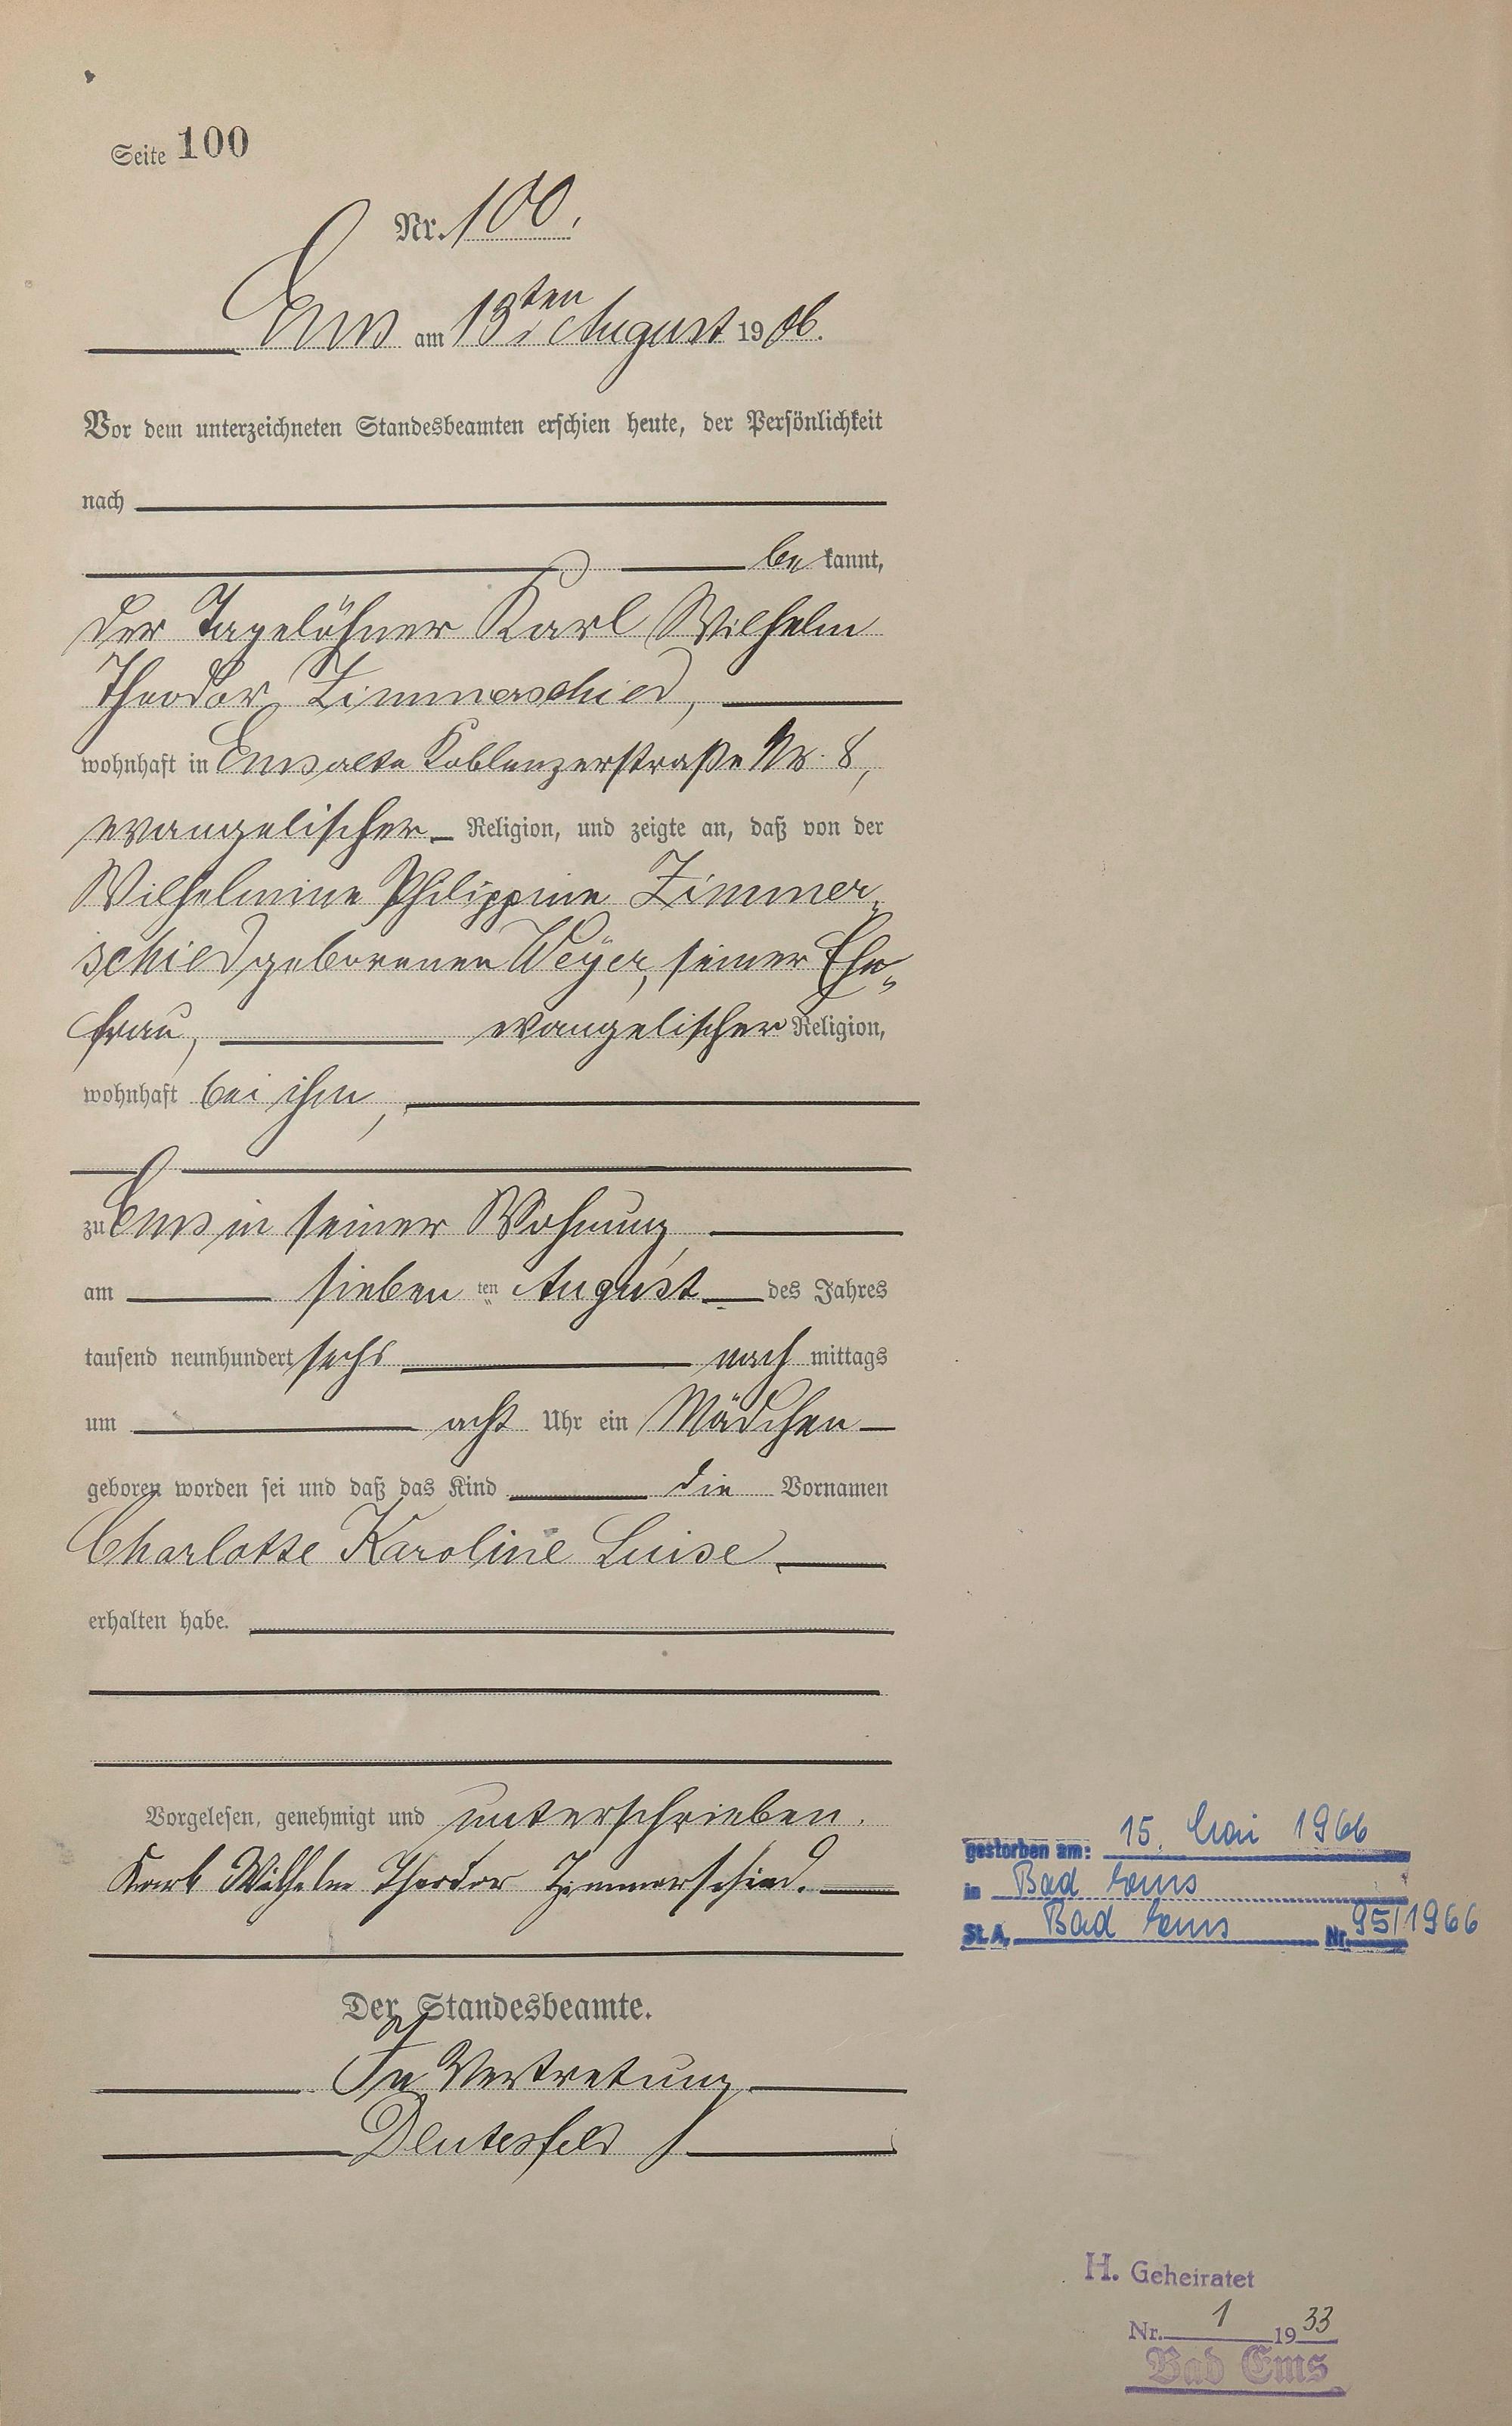 Seite 100
Nr. 100.
Ems am 13ten August 1906.
Vor dem unterzeichneten Standesbeamten erschien heute, der Persönlichkeit
nach
bekannt,
der Tagelöhner Karl Wilhelm
Theodor Zimmerschied,
wohnhaft in Ems alte Koblenzerstraße Nr. 8,
evangelischer Religion, und zeigte an, daß von der
Wilhelmine Philippine Zimmer-
schied geborenen Weyer, seiner Ehe-
frau, evangelischer Religion,
wohnhaft bei ihm,
zu Ems in seiner Wohnung,
am sieben ten August des Jahres
tausend neunhundert sechs nach mittags
um acht Uhr ein Mädchen
geboren worden sei und daß das Kind die Vornamen
Charlotte Karoline Luise
erhalten habe.
Vorgelesen, genehmigt und unterschrieben.
Karl Wilhelm Theodor Zimmerschied.
gestorben am: 15. Mai 1966
in Bad Ems
St. A. Bad Ems Nr. 95/1966
Der Standesbeamte.
In Vertretung
H. Geheiratet
Nr. 1 1933
Bad Ems